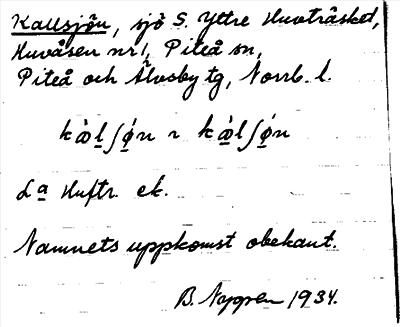 Kallsjön, sjö S. Yttre Huvträsket,
Huvåsen nr 1, Piteå sn,
Piteå och Älvsby tg, Norrb. l.
kàl̲ʃǿ̲n ~ kà̲lʃǿ̲n
La Huftr. ek.
Namnets uppkomst obekant.
B. Nygren 1934.